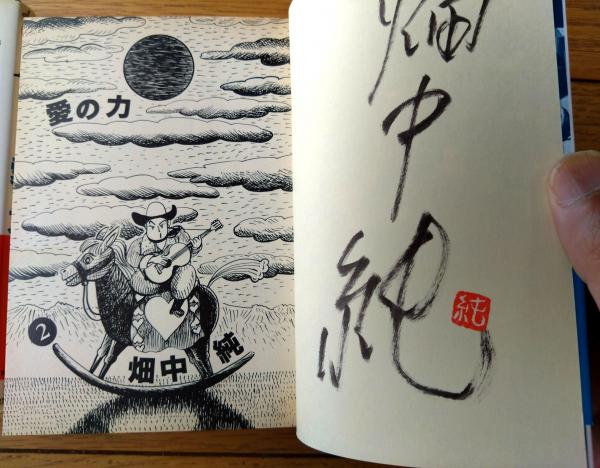 愛の力
2
畑中
純
畑中純
純